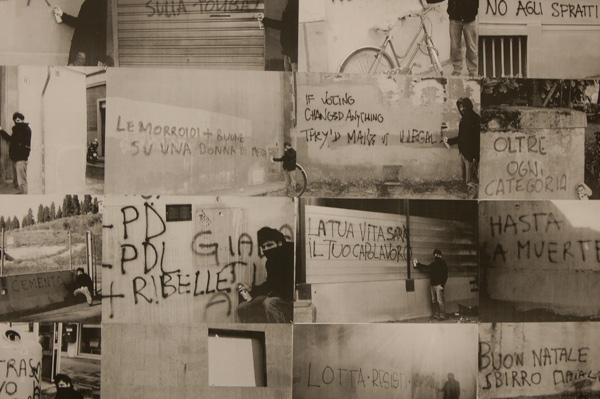 SULLA
NO AGLI SFRATTI
LE MORROIDI + BUONE
SU UNA DONNA
IF VOTING
CHANGED ANYTHING
THEY'D MAKE IT ILLEGAL
OLTRE
OGNI
CATEGORIA
CEMENTO
-PD
-PDL
+ RIBELLE
GIADA
LA TUA VITA SARÀ
IL TUO CAPOLAVORO
HASTA
LA MUERTE
LOTTA RESISTI
BUON NATALE
SBIRRO MAIALE